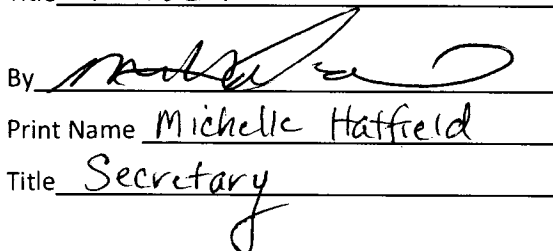 By
Print Name Michelle Hatfield
Title Secretary